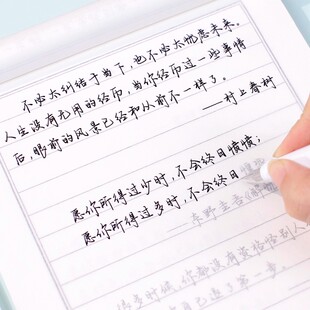 不必太纠结于当下，也不必太忧虑未来。
人生没有无用的经历，当你经历过一些事情
后，眼前的风景已经和从前不一样了。
——村上春树
愿你所得过少时，不会终日愤愤；
愿你所得过多时，不会终日
——东野圭吾
很多时候，你都没有资格怪别人